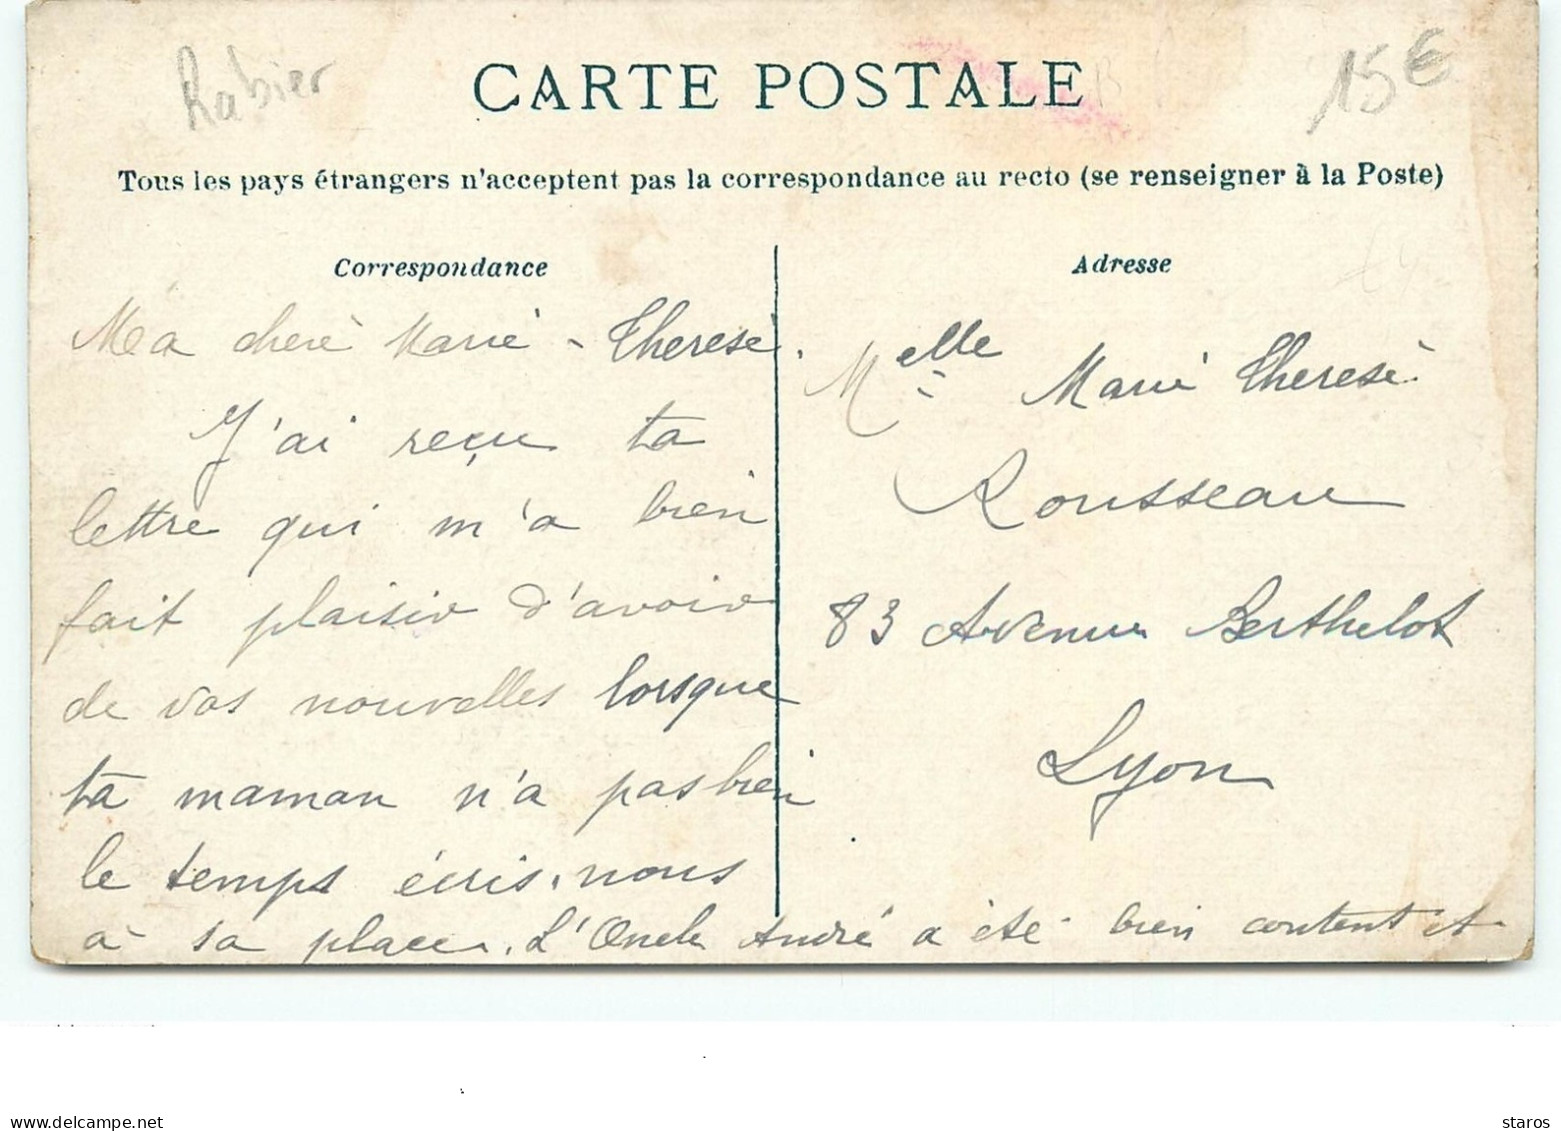 Rabier
CARTE POSTALE
15€
Tous les pays étrangers n'acceptent pas la correspondance au recto (se renseigner à la Poste)
Correspondance
Ma chère Marie-Thérèse.
J'ai reçu ta
lettre qui m'a bien
fait plaisir d'avoir
de vos nouvelles lorsque
ta maman n'a pas bien
le temps écris-nous
à sa place. L'Oncle André a été bien content et
Adresse
Melle Marie Thérèse
Rousseau
83 Avenue Berthelot
Lyon
www.delcampe.net
staros